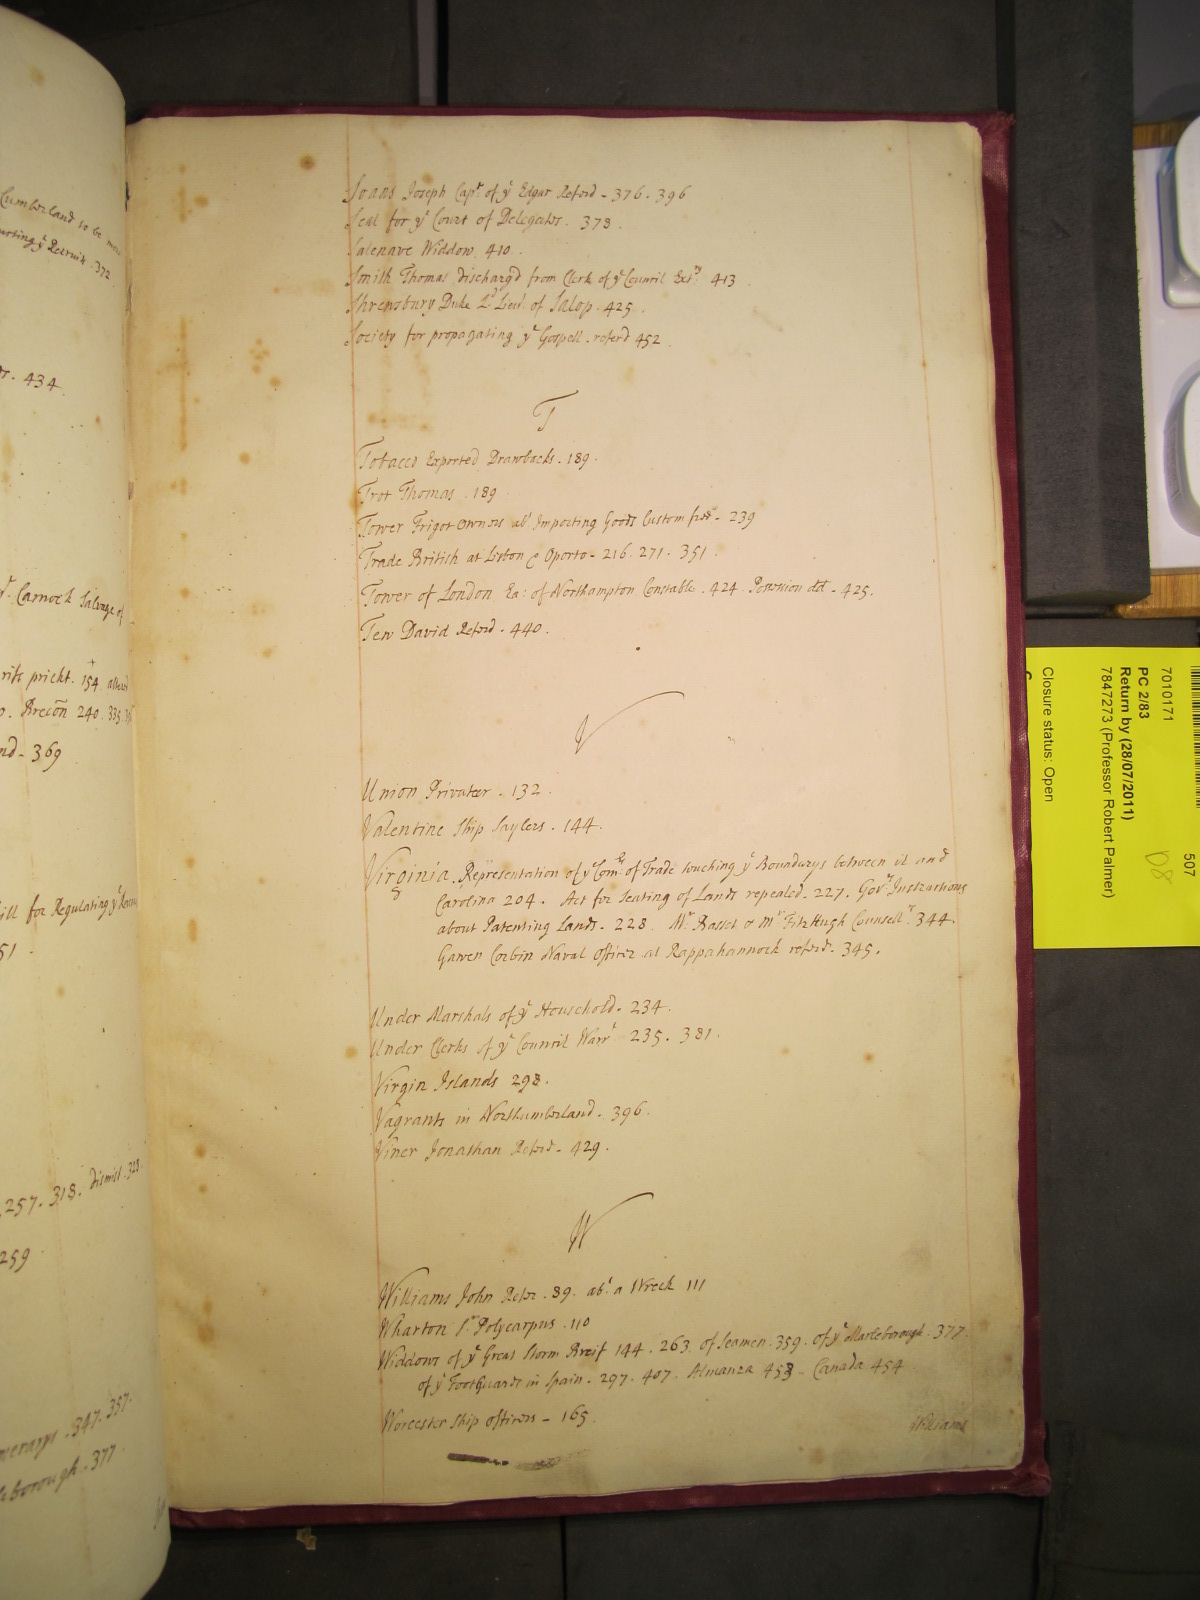 Cumberland to be
ye Recruits . 372
434
Carnock Salvage of
pricht . 154 altered
Brecon 240 . 335
369
ill for Regulating ye
51 .
257 . 318 . dismist . 328
259
347 . 357 .
borough . 377
Soans Joseph Capt. of ye Edgar Referd - 376 . 396
Seal for ye Court of Delegates . 378 .
Salenave Widdow . 410 .
Smith Thomas dischargd from Clerk of ye Council Extry 413
Shrewsbury Duke Ld. Lieut. of Salop . 425 .
Society for propagating ye Gospell . referd 452 .
T
Tobacco Exported Drawbacks . 189 .
Trot Thomas . 189
Tower Frigot Owners abt. Importing Goods Custom free - 239
Trade British at Lisbon & Oporto - 216 . 271 . 351 .
Tower of London Ea: of Northampton Constable . 424 . Possession dd . 425 .
Tew David Referd . 440 .
V
Union Privateer . 132 .
Valentine Ship Saylers . 144 .
Virginia . Representation of ye Comrs. of Trade touching ye Boundarys between it and
Carolina 204 . Act for Seating of Lands repealed . 227 . Govrs Instructions
about Patenting Lands . 228 . Mr. Basset & Mr. FitzHugh Counsellrs. 344 .
Gawen Corbin Naval Officer at Rappahannock referd . 345 .
Under Marshals of ye Household . 234 .
Under Clerks of ye Council Warrt 235 . 381 .
Virgin Islands 298 .
Vagrants in Northumberland . 396 .
Viner Jonathan Referd . 429 .
W
Williams John Refer . 89 . abt. a Wreck 111
Wharton Sr. Polycarpus . 110
Widdows of ye Great Storm Breif 144 . 263 of Seamen . 359 . of ye Marleborough . 377 .
of ye Foot Guards in Spain . 297 . 407 . Almanza 453 . Canada 454
Worcester Ship officers - 165 .
Williams
507
7010171
PC 2/83
Return by (28/07/2011)
7847273 (Professor Robert Palmer)
Closure status: Open
D8